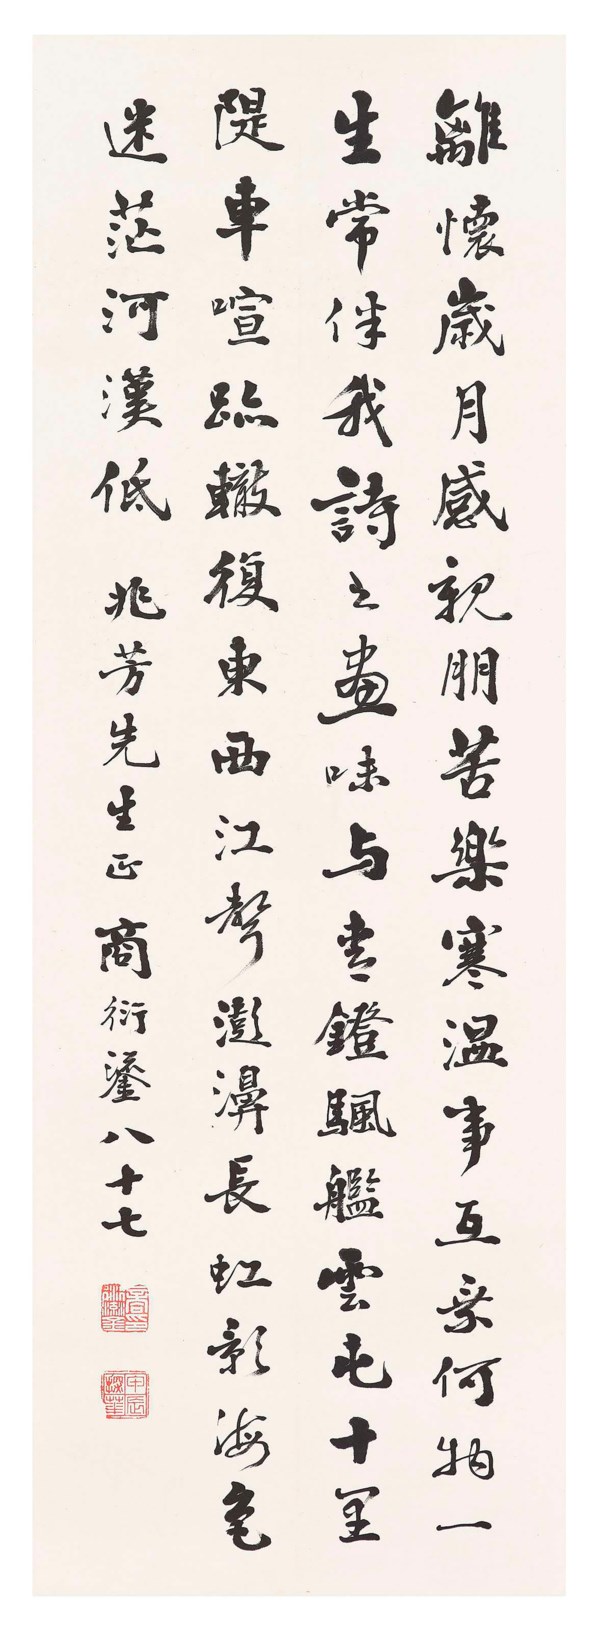 離懷歲月感親朋苦樂寒溫事互乘何物一
生常伴我詩之畫味与書鐙颿艦雲屯十里
隄車喧跡轍復東西江聲澎濞長虹影海色
迷茫河漢低 兆芳先生正 商衍鎏八十七
商衍鎏印
甲辰探華